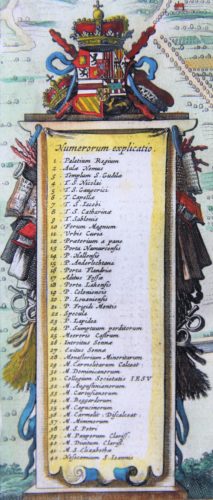 Numerorum explicatio
1. Palatium Regium
2. Aulæ Nemus
3. Templum S. Gudilæ
4. T. S. Nicolai
5. T. S. Gaugerici
6. T. Capellæ
7. T. S. Iacobi
8. T. S. Catharinæ
9. T. Sablonis
10. Forum Magnum
11. Urbis Curia
12. Prætorium a pane
13. Porta Namurcensis
14. P. Hallensis
15. P. Anderlechtana
16. Porta Flandriæ
17. Aliter Fossæ
18. Porta Lakensis
19. P. Coloniensis
20. P. Lovaniensis
21. P. Frigidi Montis
22. Specula
23. P. Lapidea
24. P. Sumptuum perditorum
25. Meereris Castrum
26. Introitus Sennæ
27. Exitus Sennæ
28. Monasterium Minoritarum
29. M. Carmelitarum Calceat:
30. M. Dominicanorum
31. Collegium Societatis IESV
32. M. Augustinianorum
33. M. Cartusianorum
34. M. Boggardorum
35. M. Capucinorum
36. M. Carmelit: Discalceat:
37. M. Minimorum
38. M. S. Petri
39. M. Pauperum Clariss.
40. M. Divitum Clariss.
41. M. S. Elizabethæ
42. Nosocomium S. Ioannis